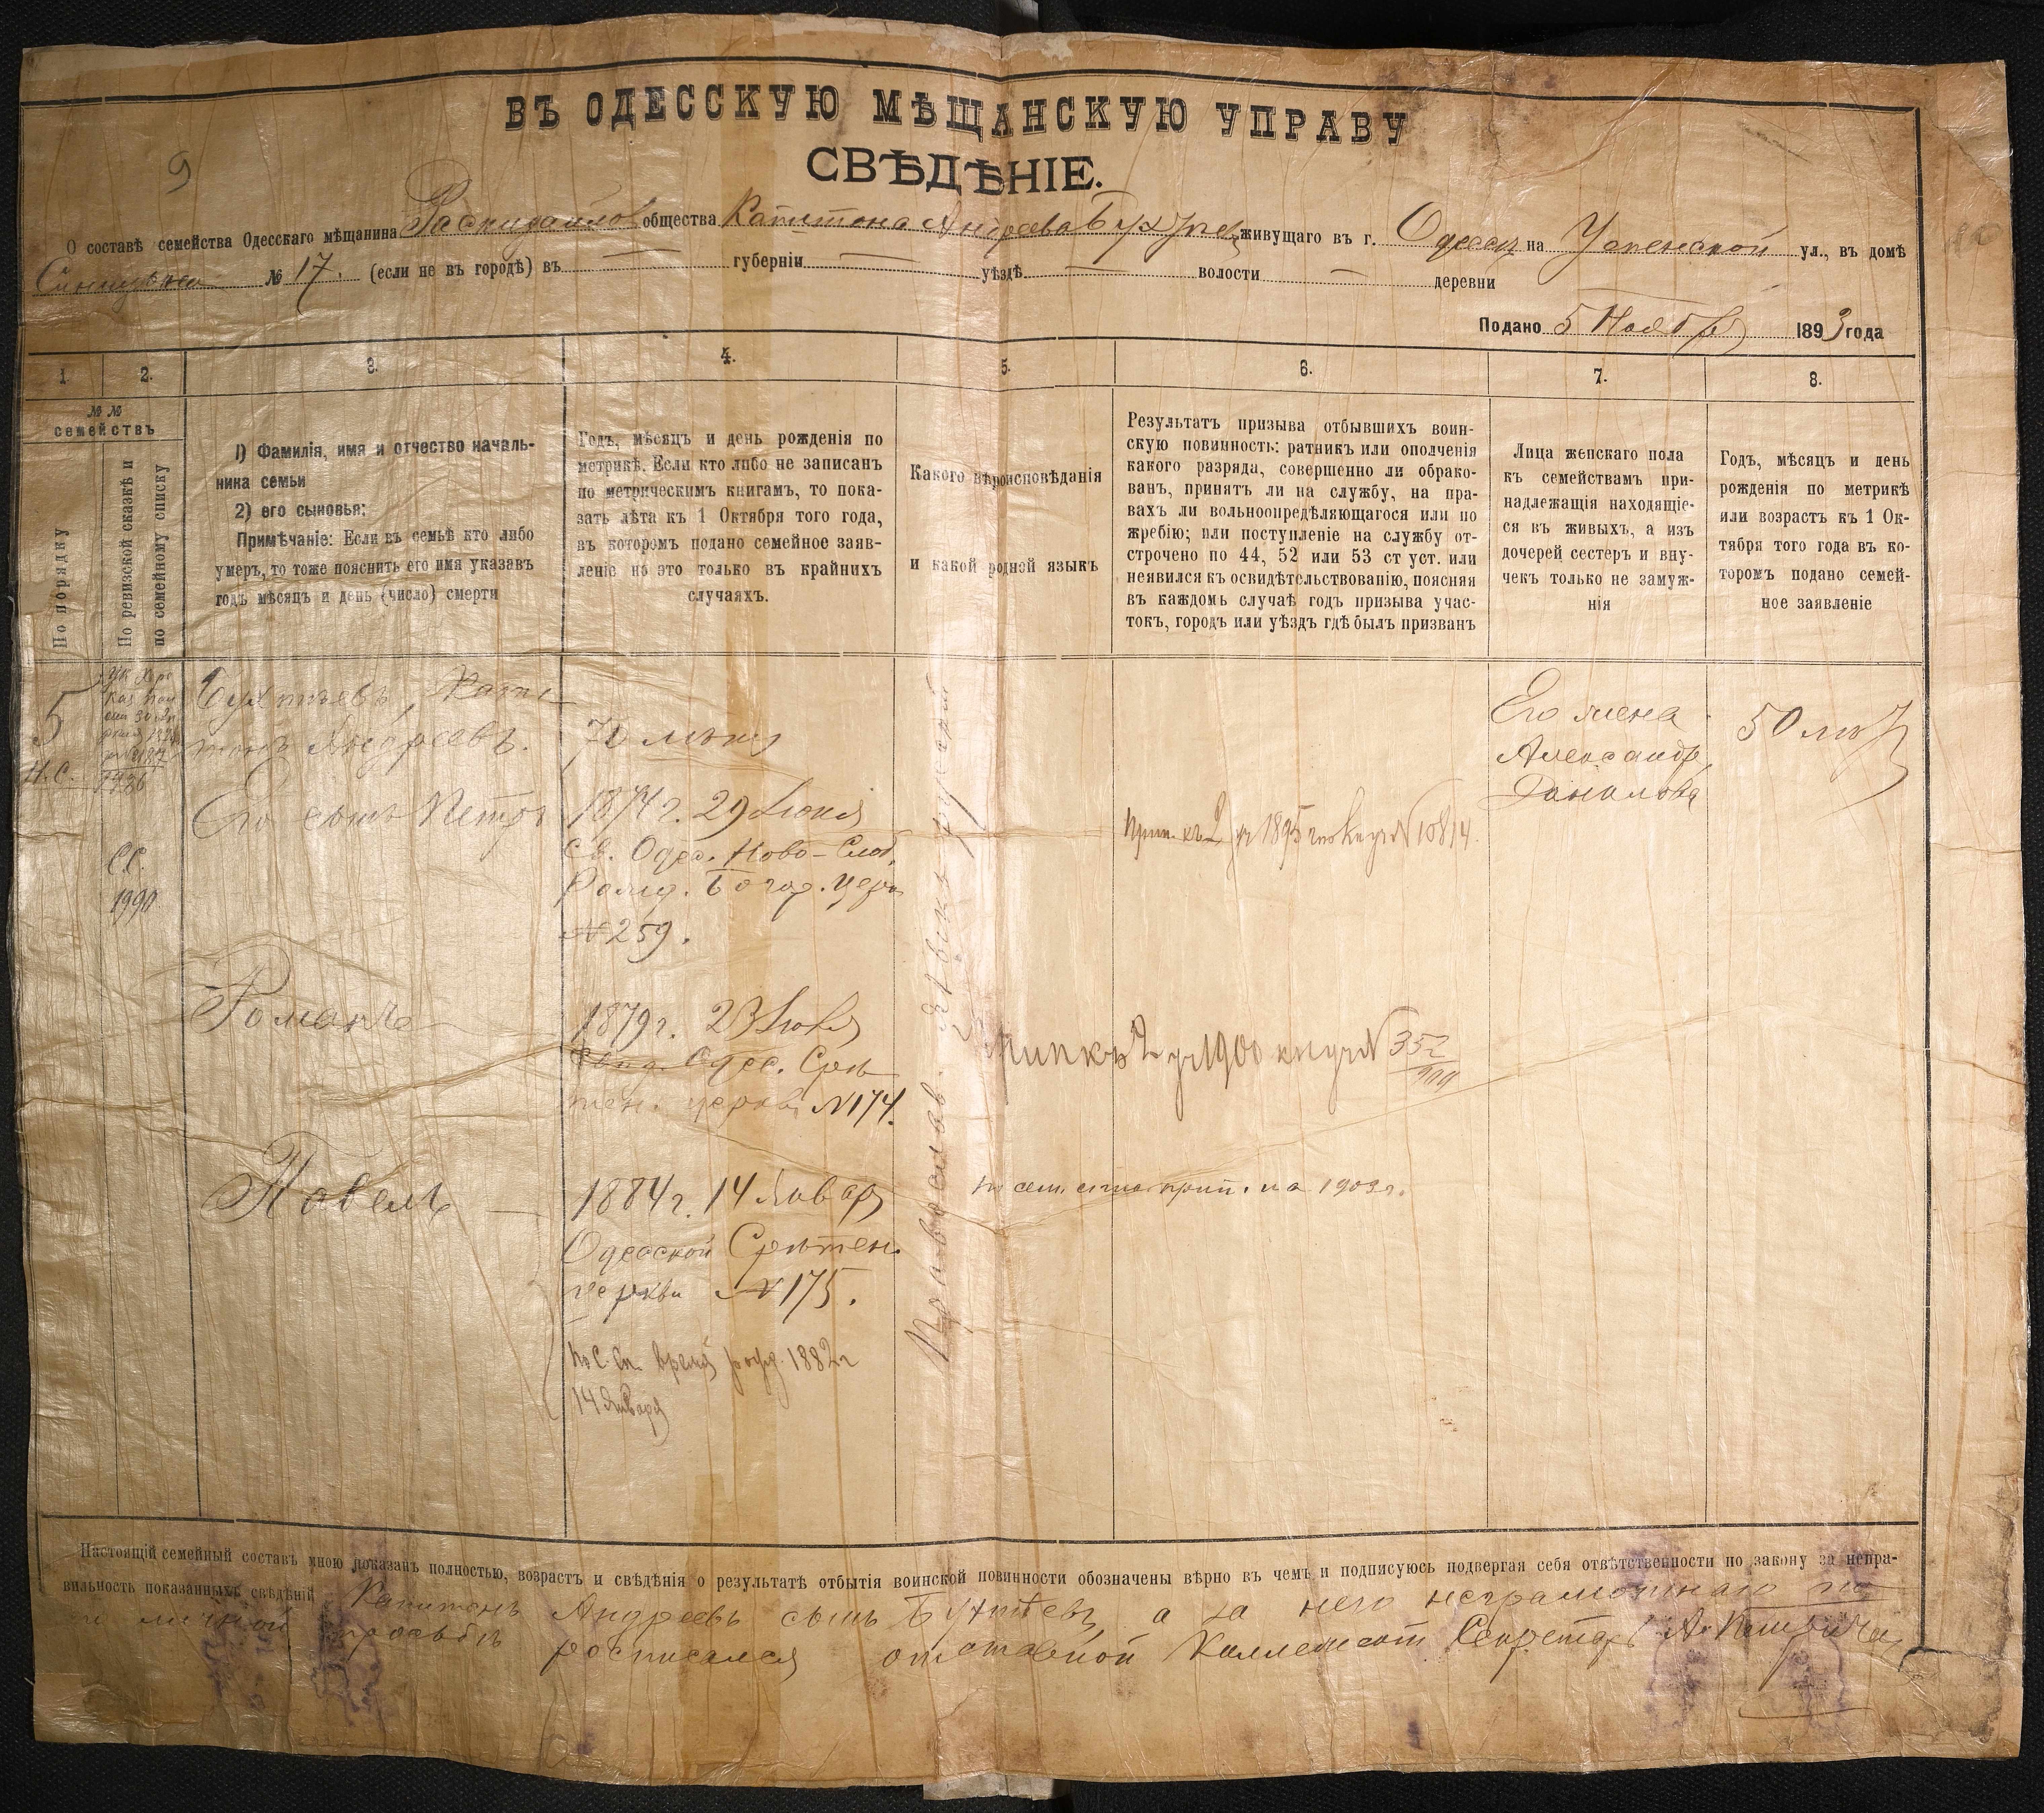 ВЪ ОДЕССКУЮ МѢЩАНСКУЮ УПРАВУ
СВѢДѢНІЕ.
9
О составѣ семейства Одесскаго мѣщанина общества Капитона Андреева живущаго въ г. Одессѣ на Успенской ул., въ домѣ
№ 17. (если не въ городѣ) въ — губерніи — уѣздѣ — волости — деревни
Подано 5 Ноября 1893 года
1. 2. 3. 4. 5. 6. 7. 8.
№№
семействъ
По порядку
По ревизской сказкѣ и
по семейному списку
1) Фамилія, имя и отчество началь-
ника семьи
2) его сыновья:
Примѣчаніе: Если въ семьѣ кто либо
умеръ, то тоже пояснить его имя указавъ
годъ мѣсяцъ и день (число) смерти
Годъ, мѣсяцъ и день рожденія по
метрикѣ. Если кто либо не записанъ
по метрическимъ книгамъ, то пока-
зать лѣта къ 1 Октября того года,
въ которомъ подано семейное заяв-
леніе но это только въ крайнихъ
случаяхъ.
Какого вѣроисповѣданія
и какой родной языкъ
Результатъ призыва отбывшихъ воин-
скую повинность: ратникъ или ополченія
какого разряда, совершенно ли обрако-
ванъ, принятъ ли на службу, на пра-
вахъ ли вольноопредѣляющагося или по
жребію; или поступленіе на службу от-
строчено по 44, 52 или 53 ст уст. или
неявился къ освидѣтельствованію, поясняя
въ каждомъ случаѣ годъ призыва учас-
токъ, городъ или уѣздъ гдѣ былъ призванъ
Лица женскаго пола
къ семействамъ при-
надлежащія находящіе-
ся въ живыхъ, а изъ
дочерей сестеръ и вну-
чекъ только не замуж-
нія
Годъ, мѣсяцъ и день
рожденія по метрикѣ
или возрастъ къ 1 Ок-
тября того года въ ко-
торомъ подано семей-
ное заявленіе
5
Н.С.
1990
Бухтѣевъ, Капи-
тонъ Андреевъ.
70 лѣтъ
Его жена
Александра
Данилова
50 лѣтъ
Его сынъ Петръ
1874 г. 29 Іюня
Св. Одес. Ново-Слоб.
Рожд. Богор. церк.
№ 259.
Прип. къ 2 уч 1895 г по №10814.
Романъ
1879 г. 23 Іюля
Одес. Срѣ-
тен. церкви № 174.
Прип къ 2 уч 1900 №352
Павелъ —
1884 г. 14 Января
Одесской Срѣтен.
церкви № 175.
прип. на 1903 г.
По С. Сп. время рожд. 1882 г
14 Января
Православ. Языкъ русскій
Настоящій семейный составъ мною показанъ полностью, возрастъ и свѣдѣнія о результатѣ отбытія воинской повинности обозначены вѣрно въ чемъ и подписуюсь подвергая себя отвѣтственности по закону за непра-
вильность показанныхъ свѣдѣній Капитонъ Андреевъ сынъ Бухтѣевъ, а за него неграмотнаго по
личной просьбѣ росписался отставной Коллежскій Секретарь